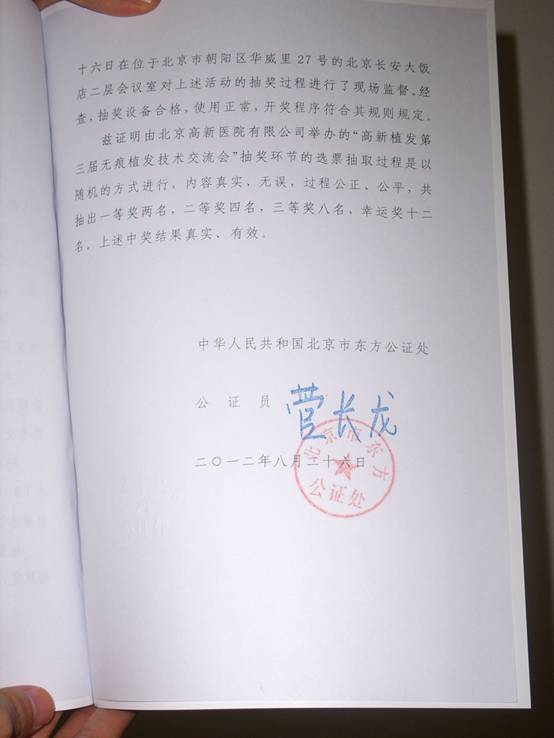 十六日在位于北京市朝阳区华威里 27 号的北京长安大饭
店二层会议室对上述活动的抽奖过程进行了现场监督。经
查，抽奖设备合格，使用正常，开奖程序符合其规则规定。
兹证明由北京高新医院有限公司举办的“高新植发第
三届无痕植发技术交流会”抽奖环节的选票抽取过程是以
随机的方式进行，内容真实、无误，过程公正、公平，共
抽出一等奖两名，二等奖四名，三等奖八名，幸运奖十二
名。上述中奖结果真实、有效。
中华人民共和国北京市东方公证处
公 证 员 菅长龙
二〇一二年八月二十六日
北京市东方
公证处